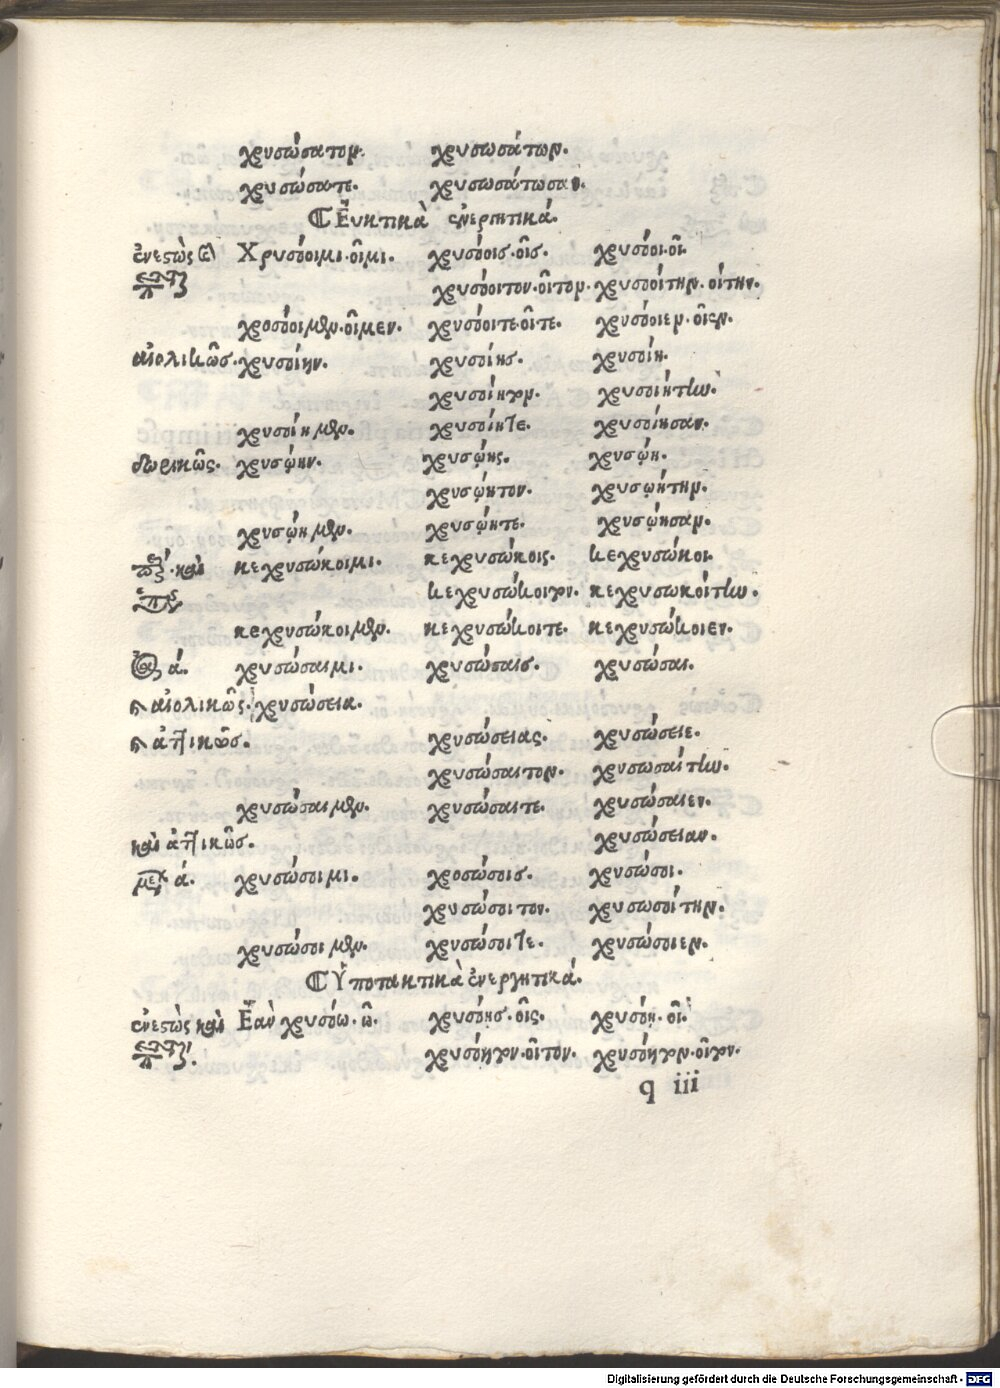 χρυσώσατον. χρυσωσάτων.
χρυσώσατε. χρυσωσάτωσαν.
Εὐκτικὰ ἐνεργητικά.
ἐνεστὼς Χρυσόοιμι·οῖμι. χρυσόοις·οῖς. χρυσόοι·οῖ.
χρυσόοιτον·οῖτον. χρυσοοίτην·οίτην.
χροσόοιμεν·οῖμεν. χρυσόοιτε·οῖτε. χρυσόοιεν·οῖεν.
αἰολικῶς. χρυσοίην. χρυσοίης. χρυσοίη.
χρυσοίητον. χρυσοιήτην.
χρυσοίημεν. χρυσοίητε. χρυσοίησαν.
δωρικῶς. χρυσῴην. χρυσῴης. χρυσῴη.
χρυσῴητον. χρυσῳήτην.
χρυσῴημεν. χρυσῴητε. χρυσῴησαν.
καὶ κεχρυσώκοιμι. κεχρυσώκοις. κεχρυσώκοι.
κεχρυσώκοιτον. κεχρυσωκοίτην.
κεχρυσώκοιμεν. κεχρυσώκοιτε. κεχρυσώκοιεν.
ά. χρυσώσαιμι. χρυσώσαις. χρυσώσαι.
αἰολικῶς. χρυσώσεια.
ἀττικῶς. χρυσώσειας. χρυσώσειε.
χρυσώσαιτον. χρυσωσαίτην.
χρυσώσαιμεν. χρυσώσαιτε. χρυσώσαιεν.
καὶ ἀττικῶς. χρυσώσειαν.
ά. χρυσώσοιμι. χροσώσοις. χρυσώσοι.
χρυσώσοιτον. χρυσωσοίτην.
χρυσώσοιμεν. χρυσώσοιτε. χρυσώσοιεν.
Ὑποτακτικὰ ἐνεργητικά.
ἐνεστὼς καὶ Ἐὰν χρυσόω·ῶ. χρυσόῃς·οῖς. χρυσόῃ·οῖ
χρυσόητον·οῖτον. χρυσόητον·οῖτον.
q iii
Digitalisierung gefördert durch die Deutsche Forschungsgemeinschaft - DFG